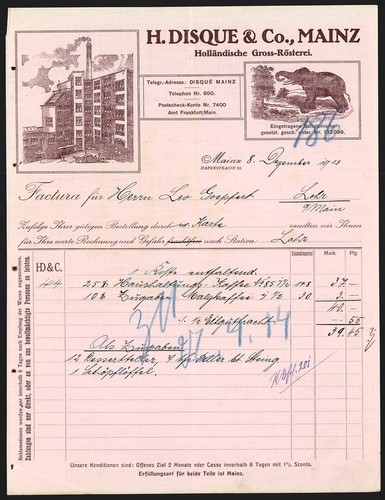 H. DISQUE & Co., MAINZ
Holländische Gross-Rösterei.
Telegr.-Adresse: DISQUÉ MAINZ
Telephon Nr. 990.
Postscheck-Konto Nr. 7400
Amt Frankfurt/Main.
Eingetragene
gesetzl. gesch. unter Nr.
186
Mainz 8. Dezember 1913
HAFENSTRASSE
Factura für Herrn Leo Goepfert, Lohr
a/Main
Zufolge Ihrer gütigen Bestellung durch Karte sandten wir Ihnen
für Ihre werte Rechnung und Gefahr nach Station: Lohr
Mark Pfg.
HD&C.
1 Kiste enthaltend
25 Haushaltungs-Kaffee 37.-
10 Zugaben Malzkaffee 30 3.-
40.-
55
39.45
Als Zugaben
12 Dessertteller
1 Schöpflöffel
Reklamationen werden nur innerhalb 8 Tagen nach Empfang der Waren angenommen.
Zahlungen sind nur direkt, oder an von uns bevollmächtigte Personen zu leisten.
Unsere Konditionen sind: Offenes Ziel 2 Monate oder Casse innerhalb 8 Tagen mit 1% Sconto.
Erfüllungsort für beide Teile ist Mainz.